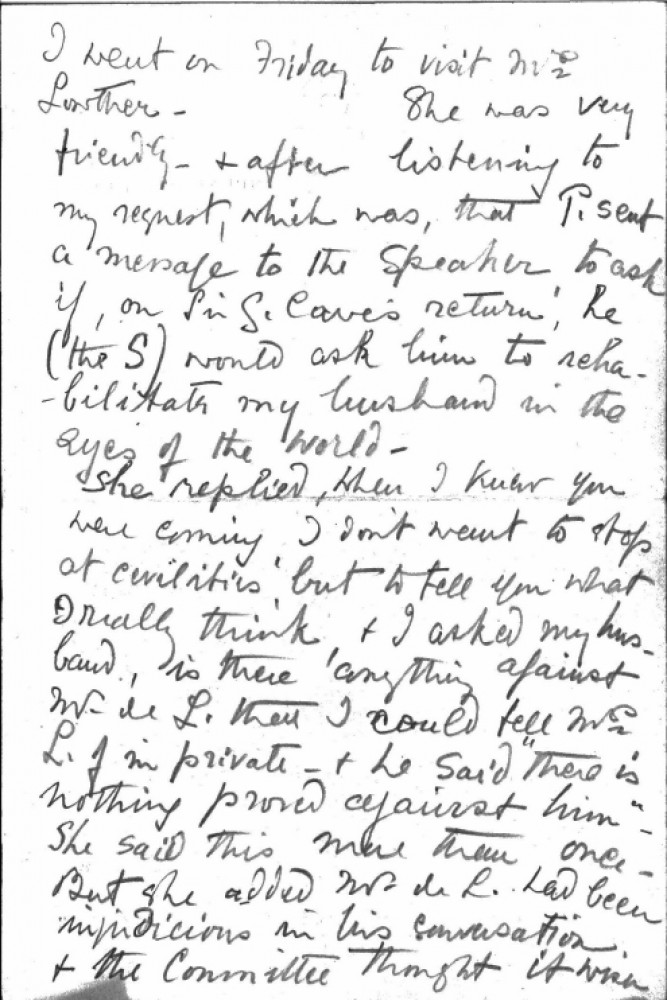 I went on Friday to visit Mrs
Lowther – She was very
friendly – & after listening to
my request, which was, that P. sent
a message to the Speaker to ask
if, on Sir G. Cave's return, he
(the S) would ask him to reha-
-bilitate my husband in the
eyes of the world –
She replied, when I knew you
were coming I don't want to stop
at civilities' but to tell you what
I really think, & I asked my hus-
band, is there anything against
Mr de L. that I could tell Mrs
L. of in private – & he said "there is
nothing proved against him" –
She said this more than once –
But she added Mr de L. had been
injudicious in his conversation
& the Committee thought it wise